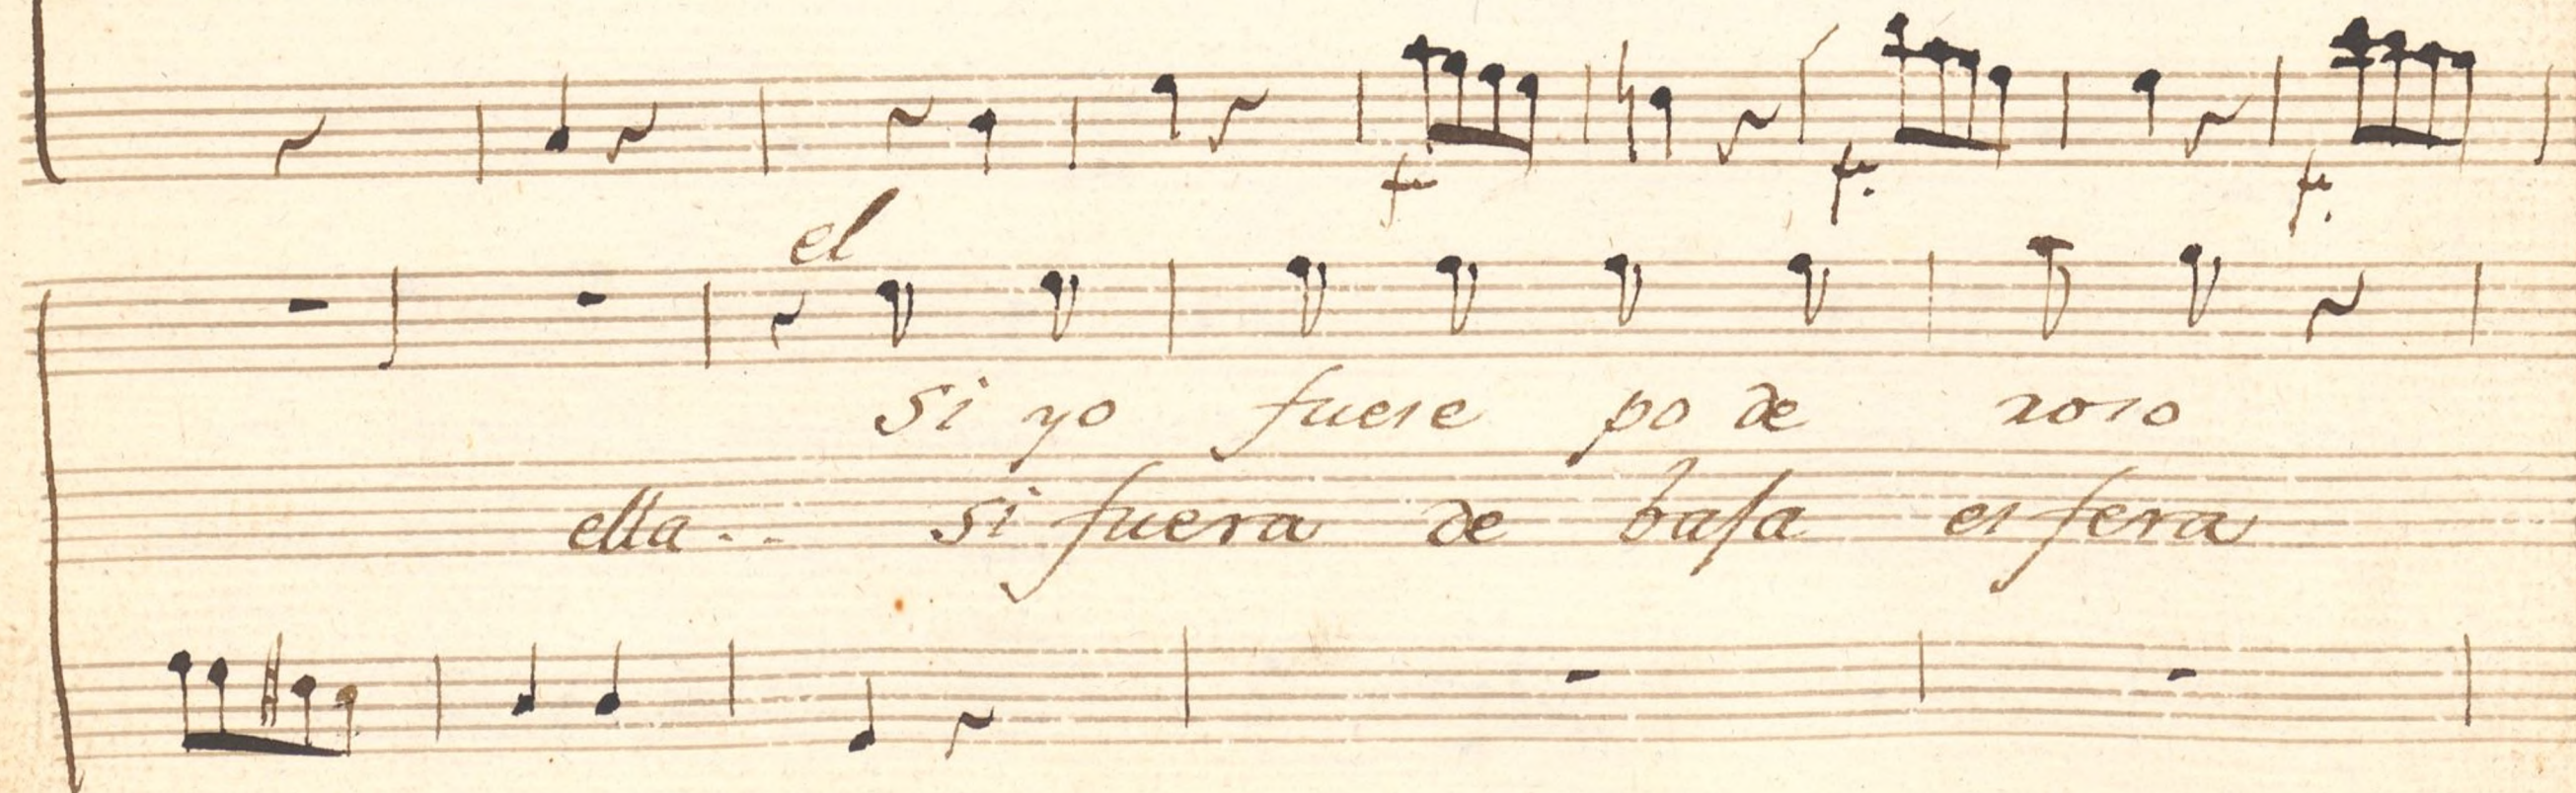 f f. f.
el
si yo fuese po de roso
ella.. si fuera de basa esfera